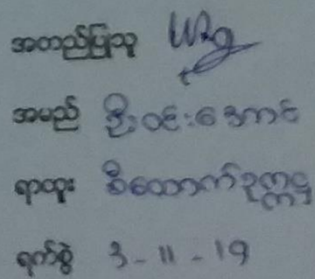 အတည်ပြုသူ
အမည် ဦးဝင်းအောင်
ရာထူး စီထောက်ဥက္ကဋ္ဌ
ရက်စွဲ 3-11-19